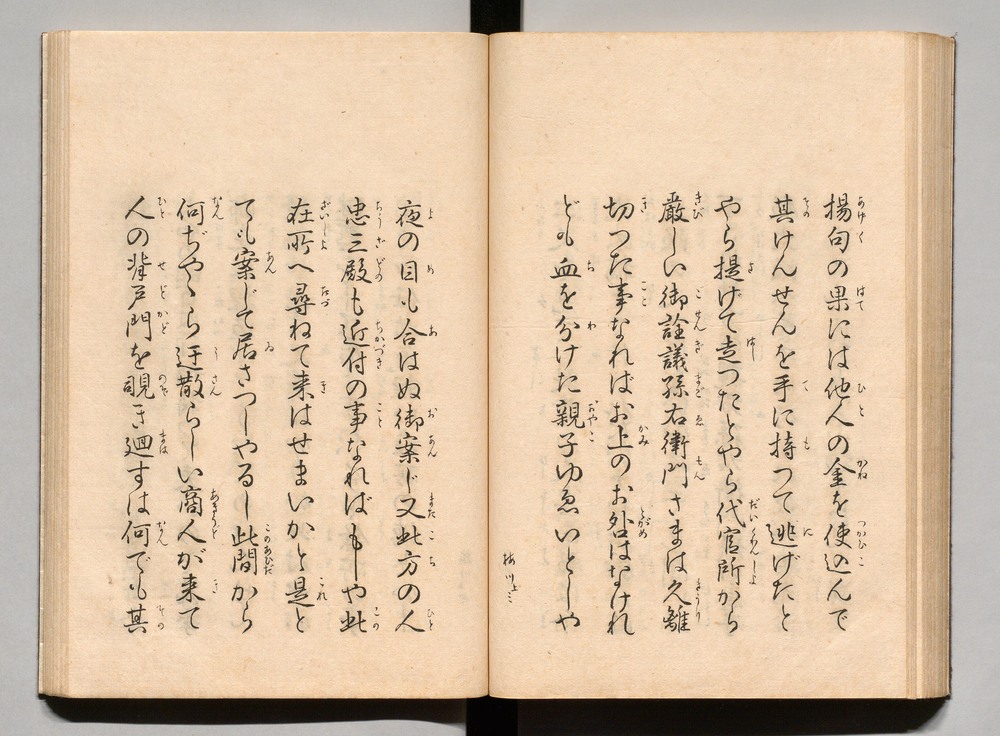 揚句の果には他人の金を使込んで
其けんせんを手に持つて逃げたと
やら提げて走つたとやら代官所から
厳しい御詮議孫右衛門さまは久離
切つた事なればお上のお咎はなけれ
ども血を分けた親子ゆゑいとしや
夜の目も合はぬ御案じ又此方の人
忠三殿も近付の事なればもしや此
在所へ尋ねて来はせまいかと是と
ても案じて居さつしやるし此間から
何ぢややら迂散らしい商人が来て
人の背戸門を覗き廻すは何でも其